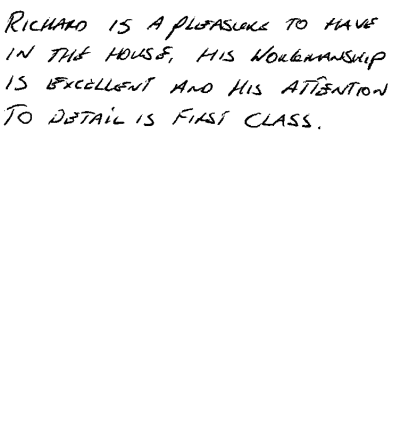 RICHARD IS A PLEASURE TO HAVE
IN THE HOUSE, HIS WORKMANSHIP
IS EXCELLENT AND HIS ATTENTION
TO DETAIL IS FIRST CLASS.